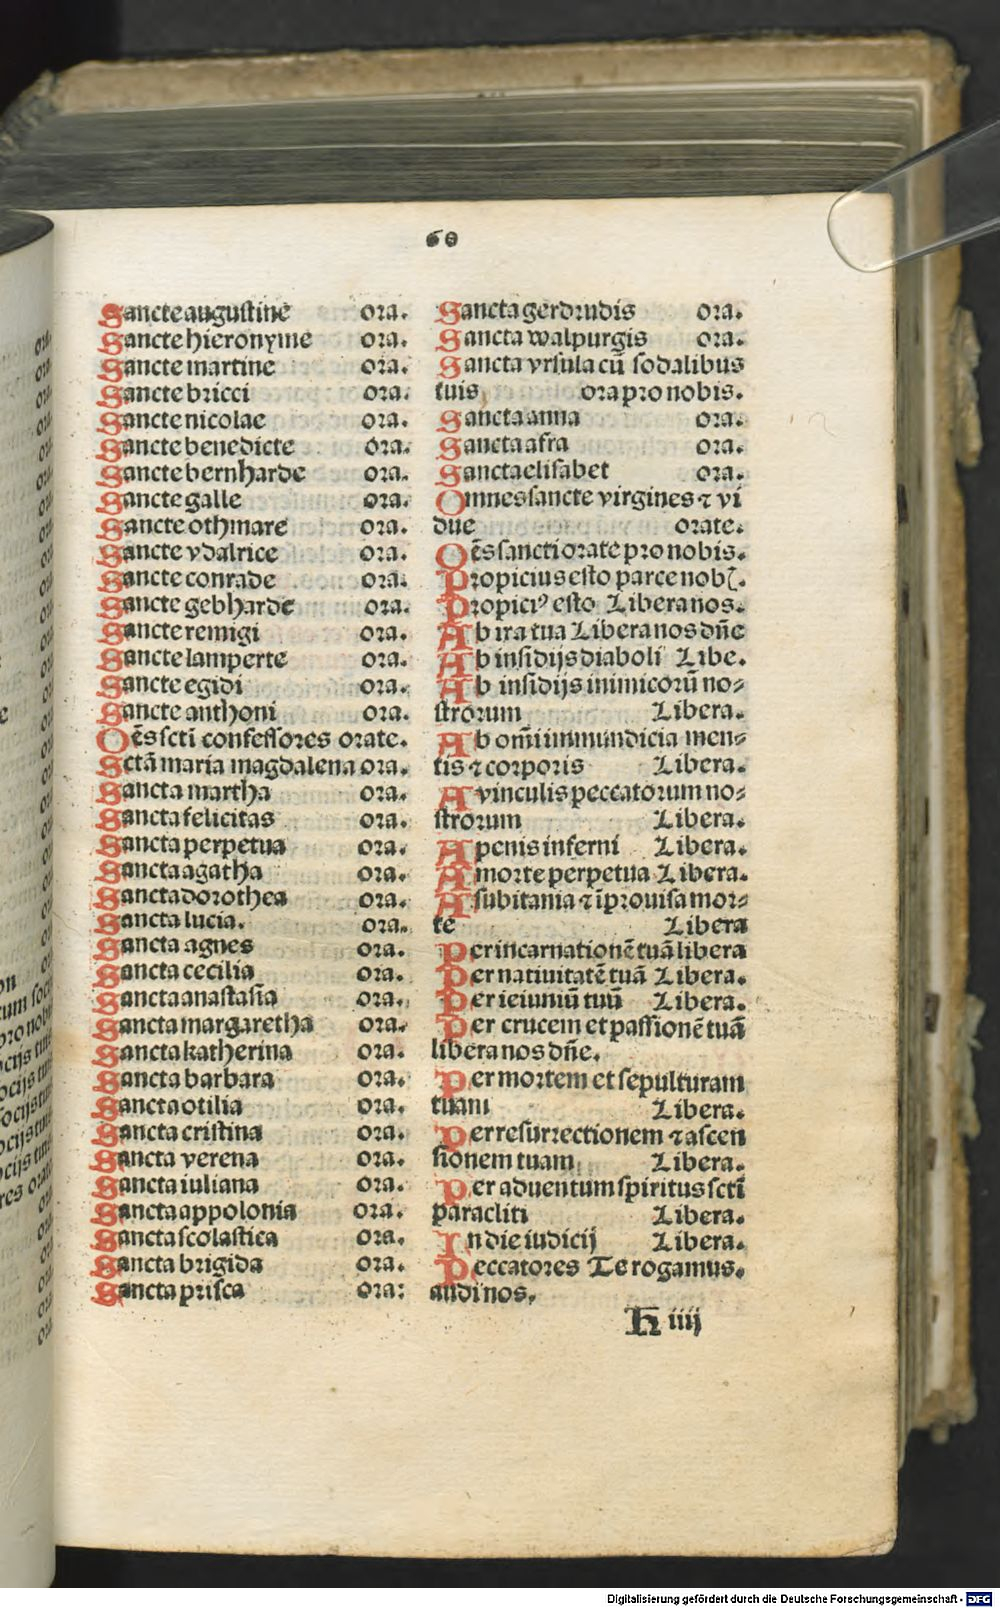 60
Sancte augustine ora.
Sancte hieronyme ora.
Sancte martine ora.
Sancte bricci ora.
Sancte nicolae ora.
Sancte benedicte ora.
Sancte bernharde ora.
Sancte galle ora.
Sancte othmare ora.
Sancte vdalrice ora.
Sancte conrade ora.
Sancte gebharde ora.
Sancte remigi ora.
Sancte lamperte ora.
Sancte egidi ora.
Sancte anthoni ora.
Oẽs scti confessores orate.
Sctã maria magdalena ora.
Sancta martha ora.
Sancta felicitas ora.
Sancta perpetua ora.
Sancta agatha ora.
Sancta dorothea ora.
Sancta lucia. ora.
Sancta agnes ora.
Sancta cecilia ora.
Sancta anastasia ora.
Sancta margaretha ora.
Sancta katherina ora.
Sancta barbara ora.
Sancta otilia ora.
Sancta cristina ora.
Sancta verena ora.
Sancta iuliana ora.
Sancta appolonia ora.
Sancta scolastica ora.
Sancta brigida ora.
Sancta prisca ora:
Sancta gerdrudis ora.
Sancta walpurgis ora.
Sancta vrsula cũ sodalibus
tuis ora pro nobis.
Sancta anna ora.
Sancta afra ora.
Sancta elisabet ora.
Omnes sancte virgines ⁊ vi
due orate.
Oẽs sancti orate pro nobis.
Propicius esto parce nobꝭ.
Propiciꝰ esto Libera nos.
Ab ira tua Libera nos dñe
Ab insidijs diaboli Libe.
Ab insidijs inimicorũ no⸗
strorum Libera.
Ab om̃i immundicia men⸗
tis ⁊ corporis Libera.
A vinculis peccatorum no⸗
strorum Libera.
A penis inferni Libera.
A morte perpetua Libera.
A subitania ⁊ ĩprouisa mor⸗
te Libera
Per incarnationẽ tuã libera
Per natiuitatẽ tuã Libera.
Per ieiuniũ tuũ Libera.
Per crucem et passionẽ tuã
libera nos dñe.
Per mortem et sepulturam
tuam Libera.
Per resurrectionem ⁊ ascen
sionem tuam Libera.
Per aduentum spiritus sctĩ
paracliti Libera.
In die iudicij Libera.
Peccatores Te rogamus.
audi nos.
H iiij
Digitalisierung gefördert durch die Deutsche Forschungsgemeinschaft - DFG